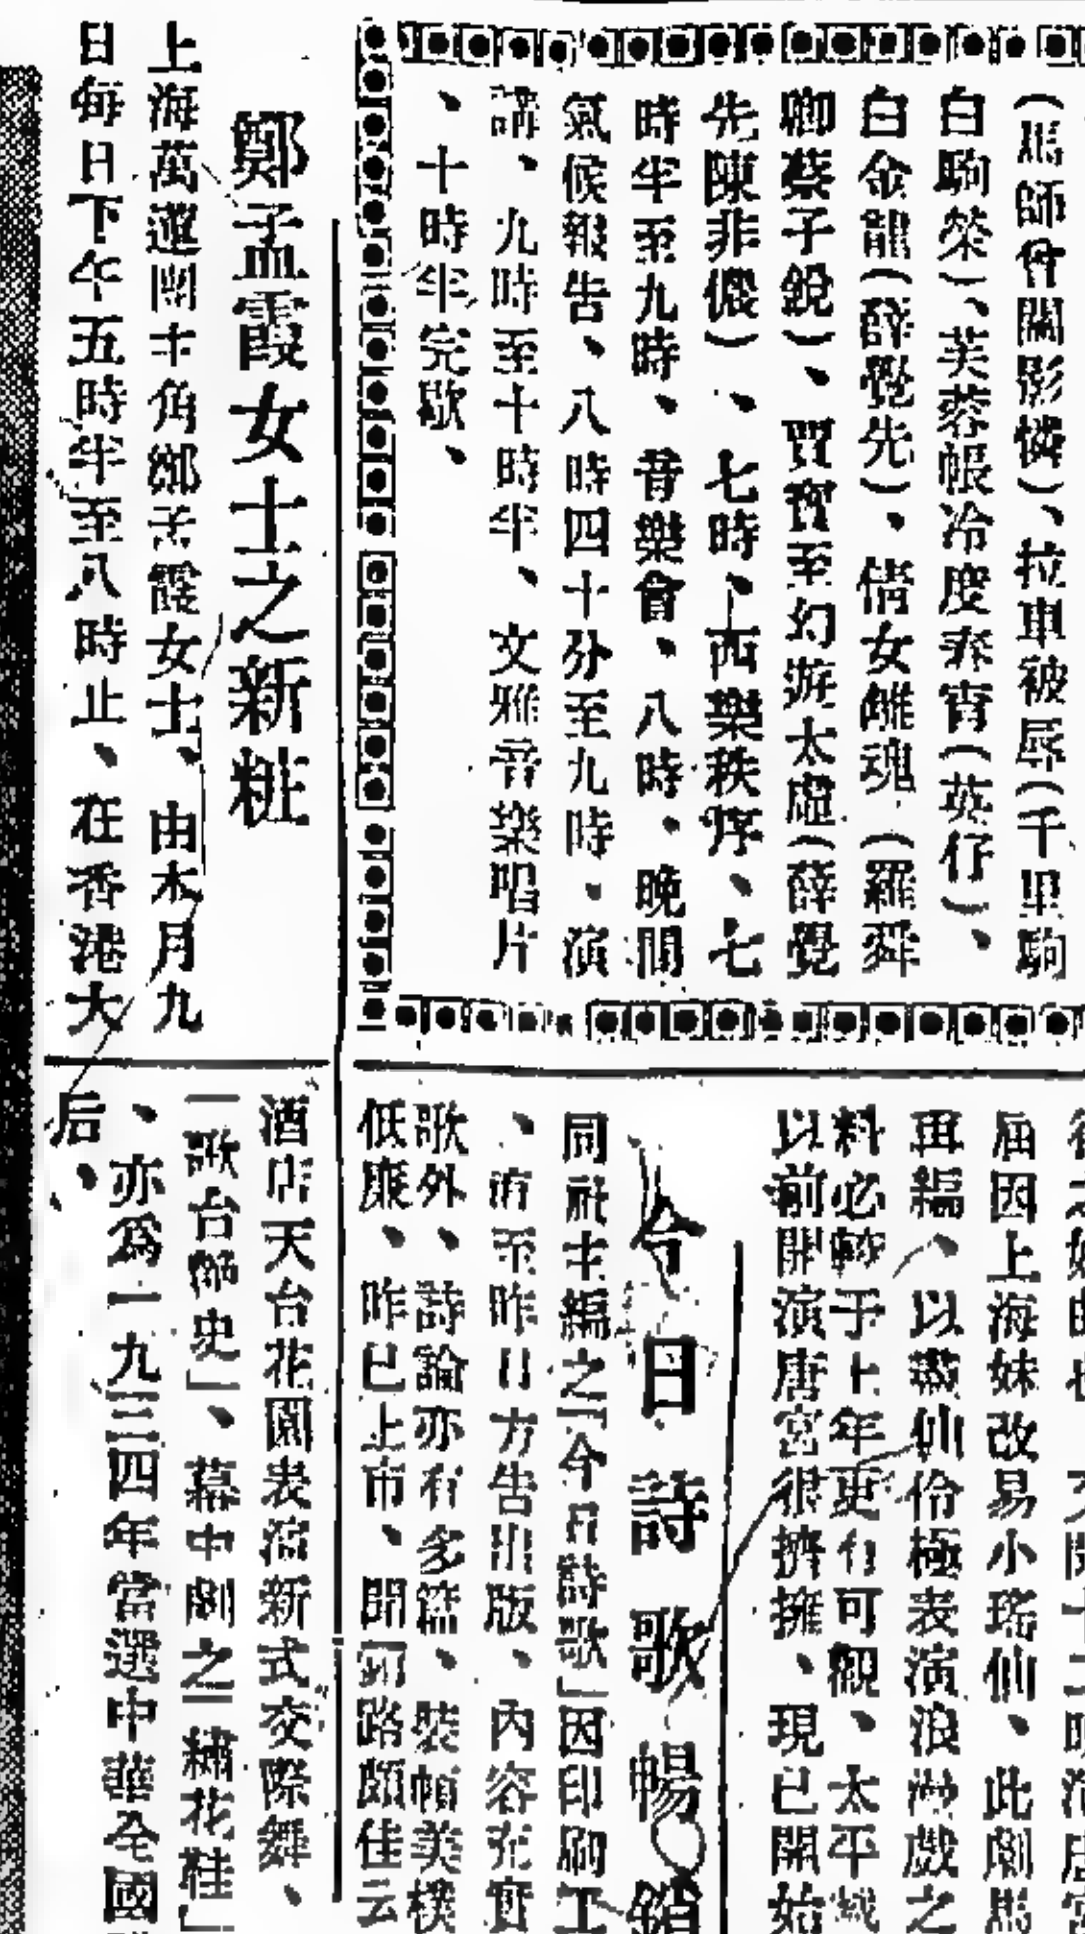 (馬師曾關影憐)、拉車被辱(千里駒
白駒榮)、芙蓉帳冷度春宵(英仔)、
白金龍(薛覺先)、倩女離魂(羅舜
卿蔡子銳)、賈寶至幻游太虛(薛覺
先陳非儂)、七時、西樂秩序、七
時半至九時、音樂會、八時、晚間
氣候報告、八時四十分至九時、演
講、九時至十時半、文雅音樂唱片
、十時半完歇、
鄭孟霞女士之新粧
上海萬 團主角鄭孟霞女士、由本月九
日每日下午五時半至八時止、在香港大
酒店天台花園表演新式交際舞、
「歌台艷史」、幕中劇之「繡花鞋」
、亦為一九三四年當選中華全國
后、
届因上海妹改易小瑤仙、此劇馬
再編、以 仙伶極表演浪漫戲之
料必較于上年更有可觀、太平戲
以前開演唐宮很擠擁、現已開始
今日詩歌暢銷
同社主編之「今日詩歌」因印刷工
、 至昨日方告出版、內容充實
歌外、詩論亦有多篇、裝幀美樸
低廉、昨已上市、聞銷路頗佳云